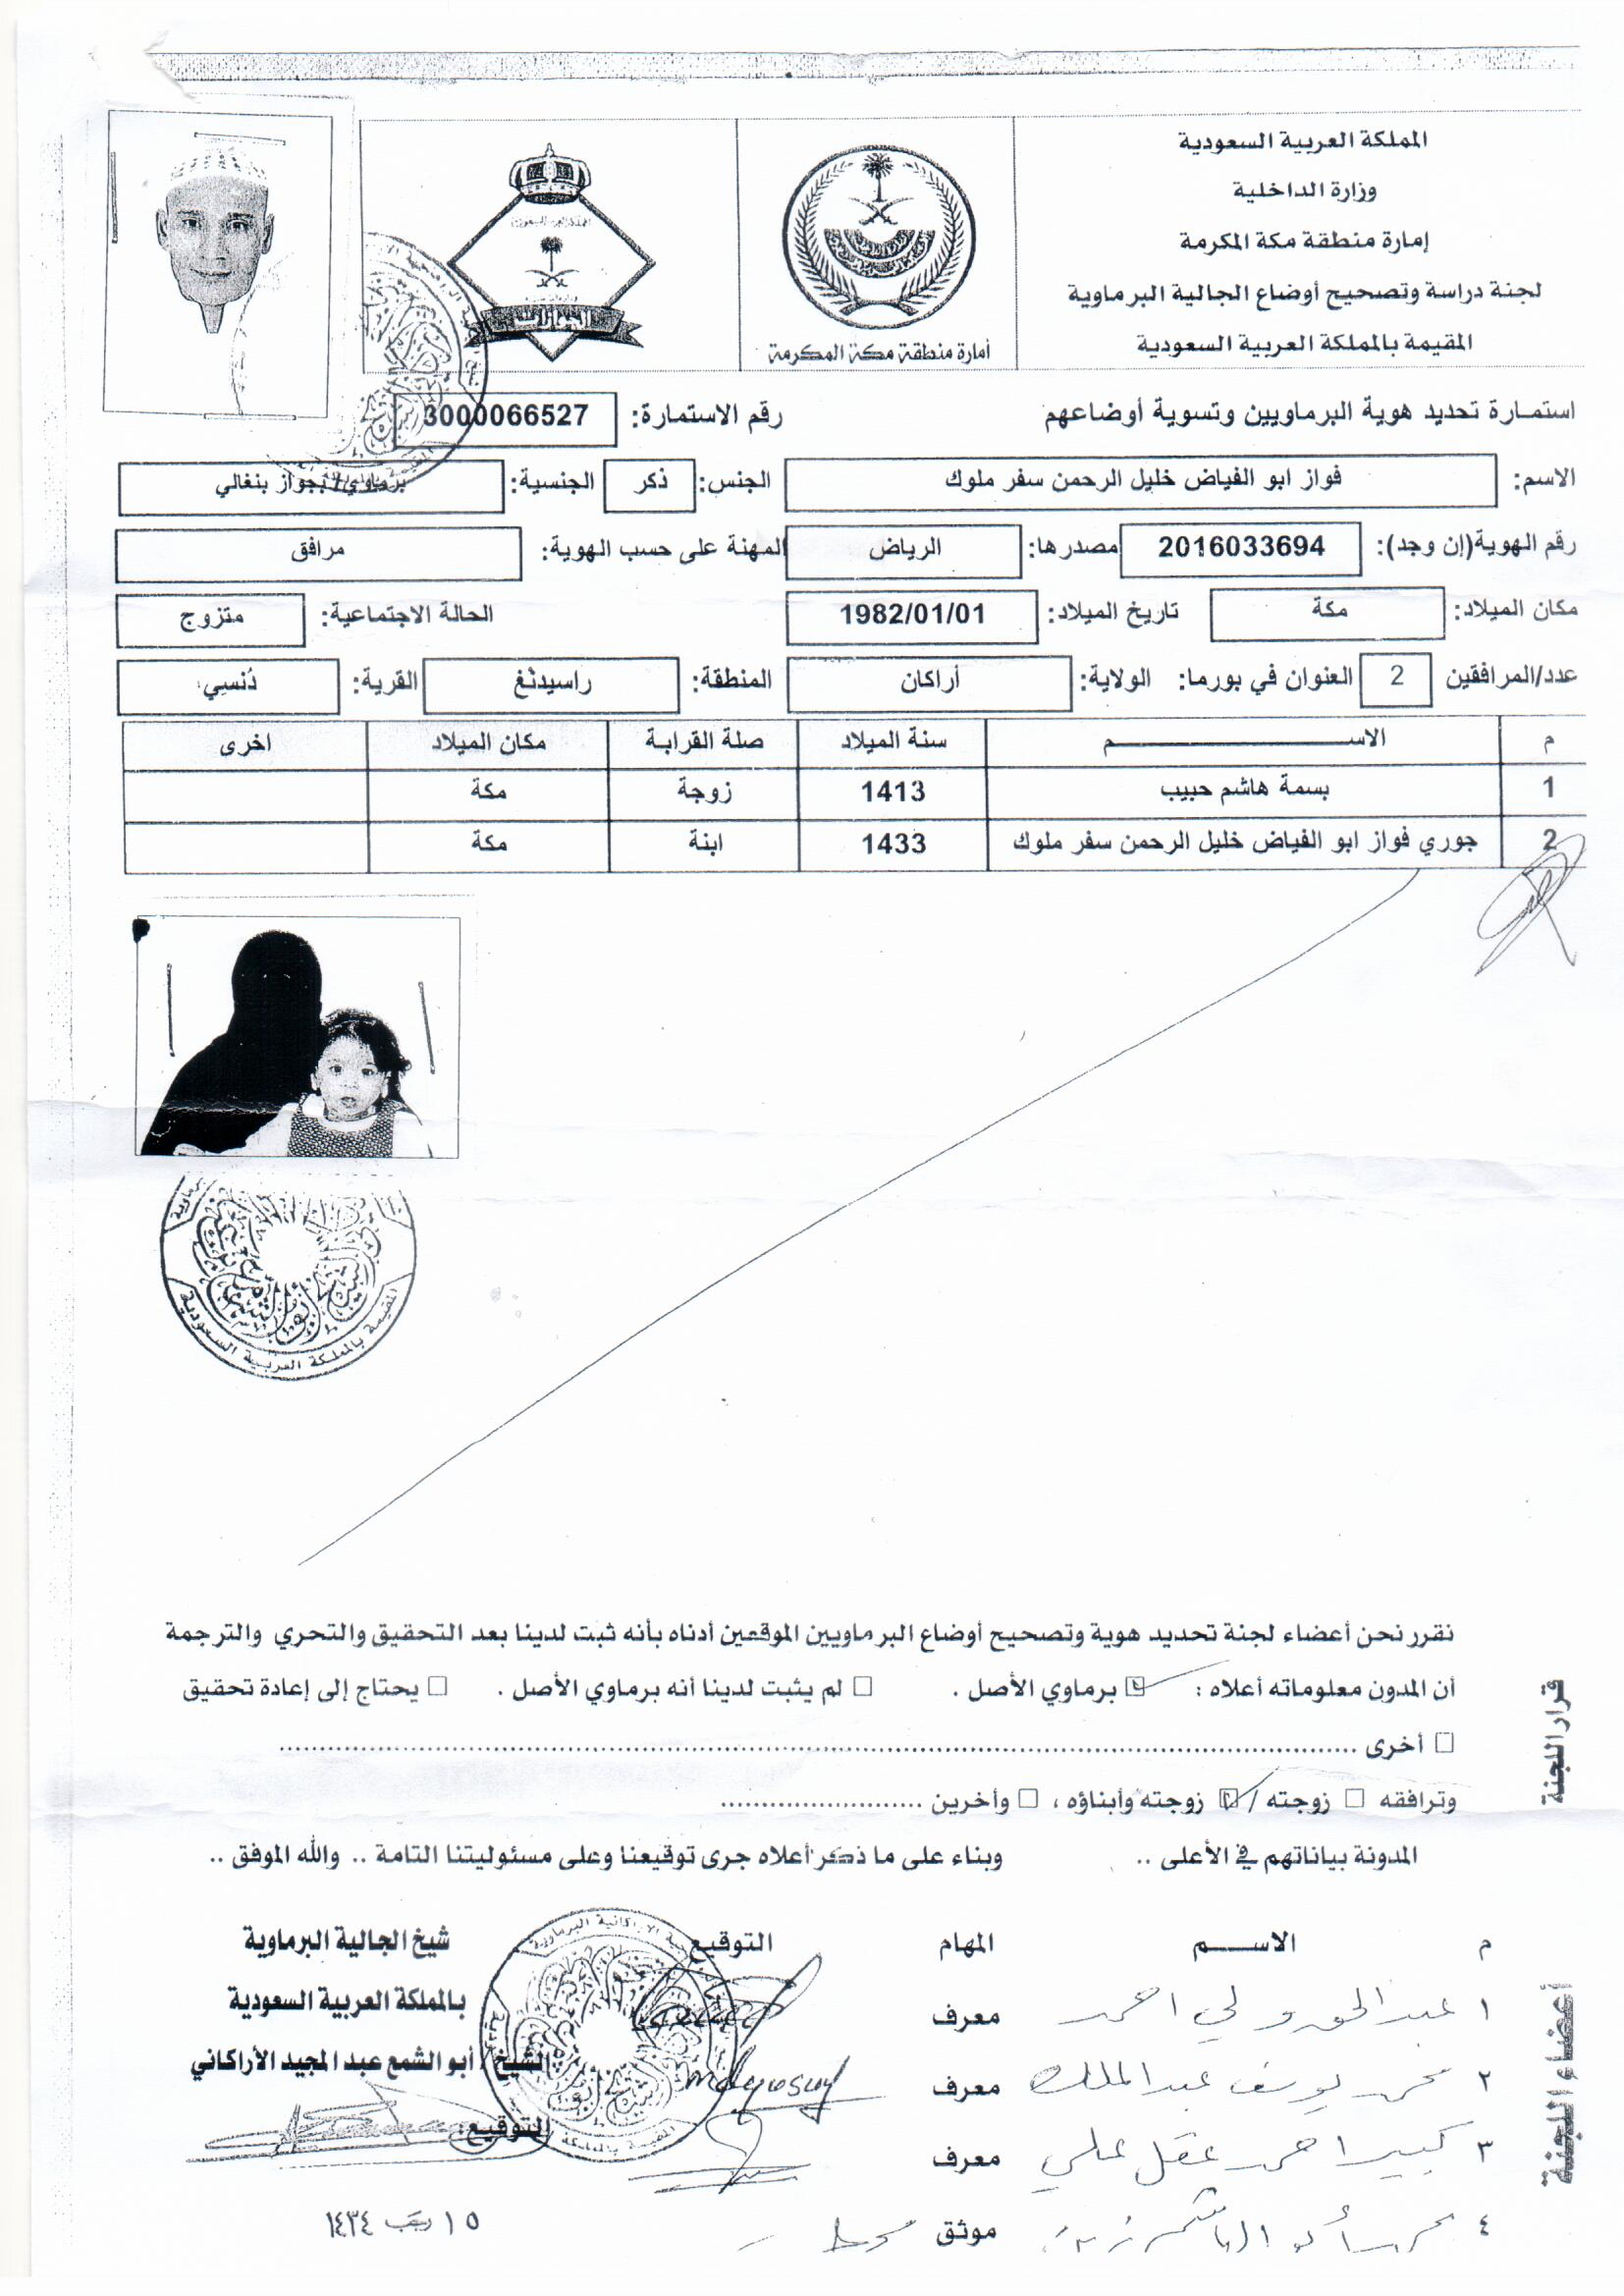 المملكة العربية السعودية
وزارة الداخلية
إمارة منطقة مكة المكرمة
لجنة دراسة وتصحيح أوضاع الجالية البرماوية
المقيمة بالمملكة العربية السعودية
أمارة منطقة مكة المكرمة
الجوازات
استمارة تحديد هوية البرماويين وتسوية أوضاعهم رقم الاستمارة: 3000066527
الاسم: فواز ابو الفياض خليل الرحمن سفر ملوك الجنس: ذكر الجنسية: برماوي/ بجواز بنغالي
رقم الهوية(إن وجد): 2016033694 مصدرها: الرياض المهنة على حسب الهوية: مرافق
مكان الميلاد: مكة تاريخ الميلاد: 1982/01/01 الحالة الاجتماعية: متزوج
عدد/المرافقين 2 العنوان في بورما: الولاية: أراكان المنطقة: راسيدنغ القرية: دُنسي
م الاســـــم سنة الميلاد صلة القرابة مكان الميلاد اخرى
1 بسمة هاشم حبيب 1413 زوجة مكة
2 جوري فواز ابو الفياض خليل الرحمن سفر ملوك 1433 ابنة مكة
المقيمة بالمملكة العربية السعودية
قرار اللجنة
نقرر نحن أعضاء لجنة تحديد هوية وتصحيح أوضاع البرماويين الموقعين أدناه بأنه ثبت لدينا بعد التحقيق والتحري والترجمة
أن المدون معلوماته أعلاه : ☑ برماوي الأصل . ☐ لم يثبت لدينا أنه برماوي الأصل . ☐ يحتاج إلى إعادة تحقيق
☐ أخرى ........................
وترافقه ☐ زوجته / ☑ زوجته وأبناؤه ، ☐ وأخرين ........................
المدونة بياناتهم في الأعلى .. وبناء على ما ذكر أعلاه جرى توقيعنا وعلى مسئوليتنا التامة .. والله الموفق ..
أعضاء اللجنة
م الاســـم المهام التوقيع
١ عبد الحق ولي احمد معرف
٢ محمد يوسف عبد الملك معرف mdyosuf
٣ كبير احمد عقل علي معرف
٤ موثق
شيخ الجالية البرماوية
بالمملكة العربية السعودية
الشيخ / أبو الشمع عبد المجيد الأراكاني
التوقيع:
١٥ رجب ١٤٣٤